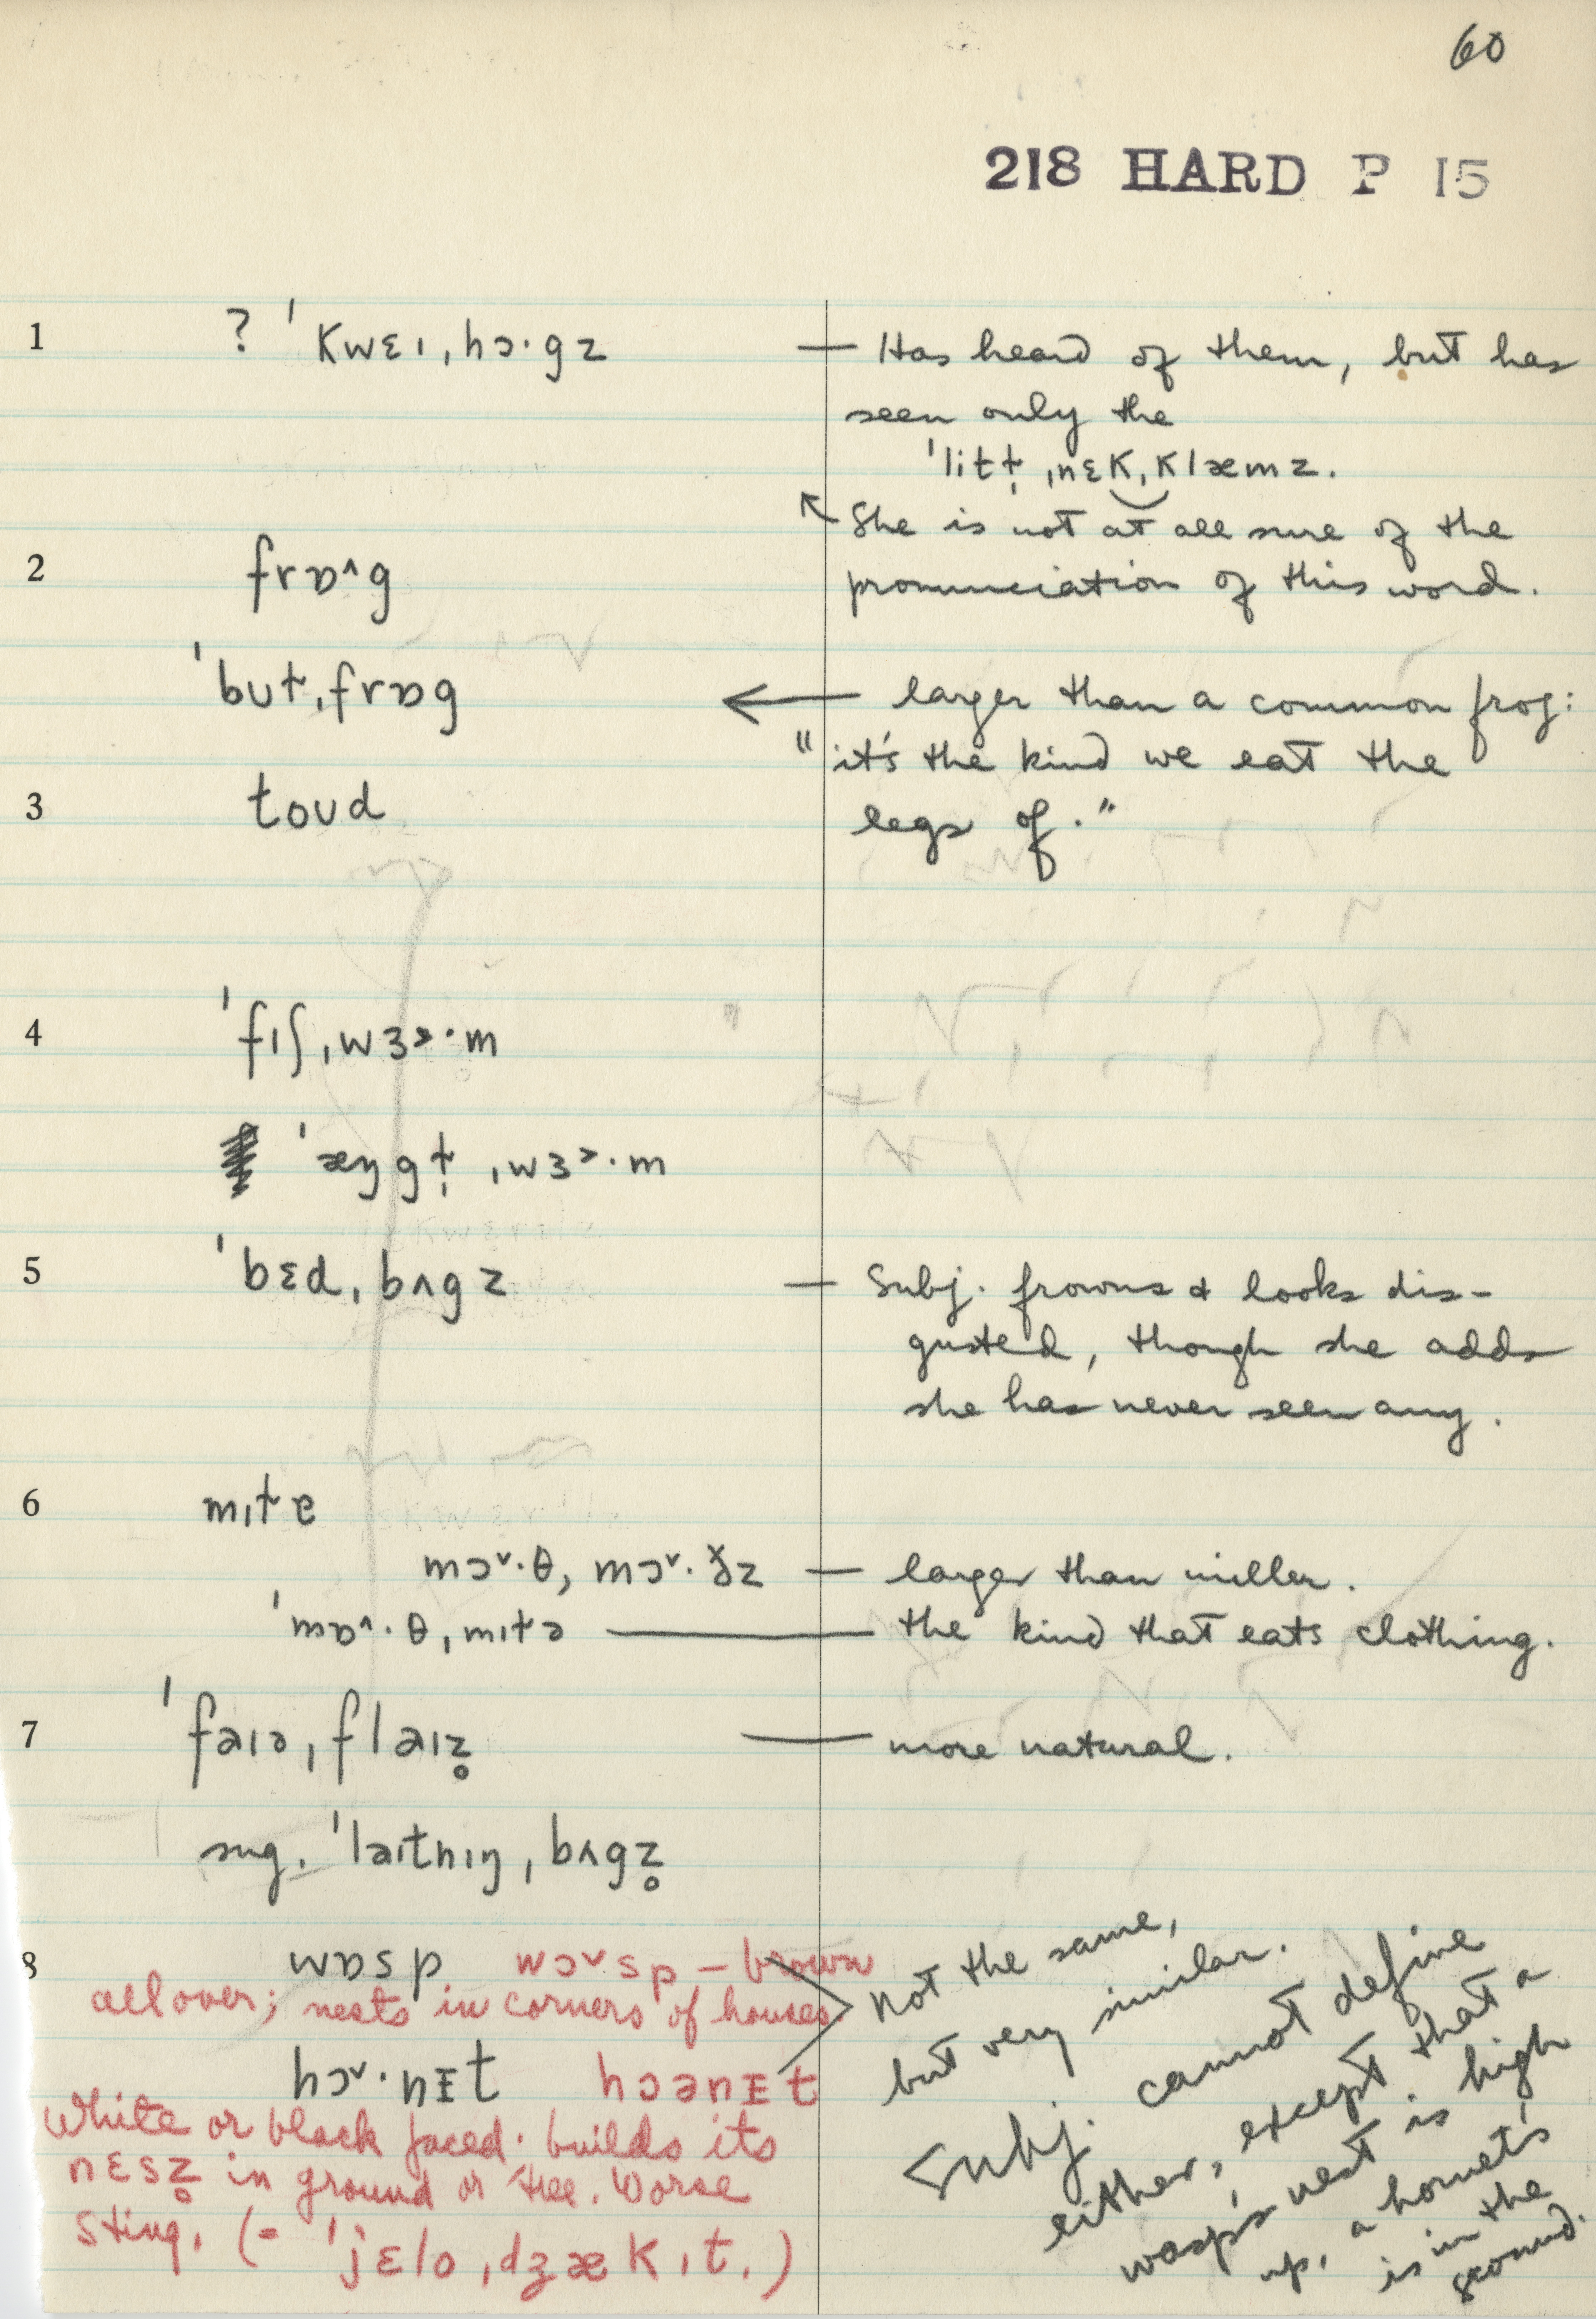 60
218 HARD P 15
1 ? ˈkwɛɪˌhɔ·gz — Has heard of them, but has
seen only the
ˈlitɫ̩ ˌnɛkˌklæmz.
She is not at all sure of the
pronunciation of this word.
2 frɒ^g
ˈbuɫˌfrɒg ← larger than a common frog:
"it's the kind we eat the
legs of."
3 toud
4 ˈfɪʃˌwɜ˃·m
ˈæŋgɫ̩ ˌwɜ˃·m
5 ˈbɛdˌbʌgz — Subj. frowns & looks dis-
gusted, though she adds
she has never seen any.
6 mɪɫɐ
mɔ˅·θ, mɔ˅·ðz — larger than miller.
ˈmɒ^·θˌmɪɫə — the kind that eats clothing.
7 ˈfaɪəˌflaɪz̥ — more natural.
sug. ˈlaɪtnɪŋˌbʌgz̥
8 wɒsp wɔ˅sp – brown
all over; nests in corners of houses
hɔ˅·nɪt hɔənɪt
White or black faced. builds its
nɛsz̥ in ground or tree. Worse
sting. (= ˈjɛloˌdʒækɪt.)
not the same,
but very similar.
Subj. cannot define
either, except that a
wasp's nest is high
up, a hornet's
is in the
ground.